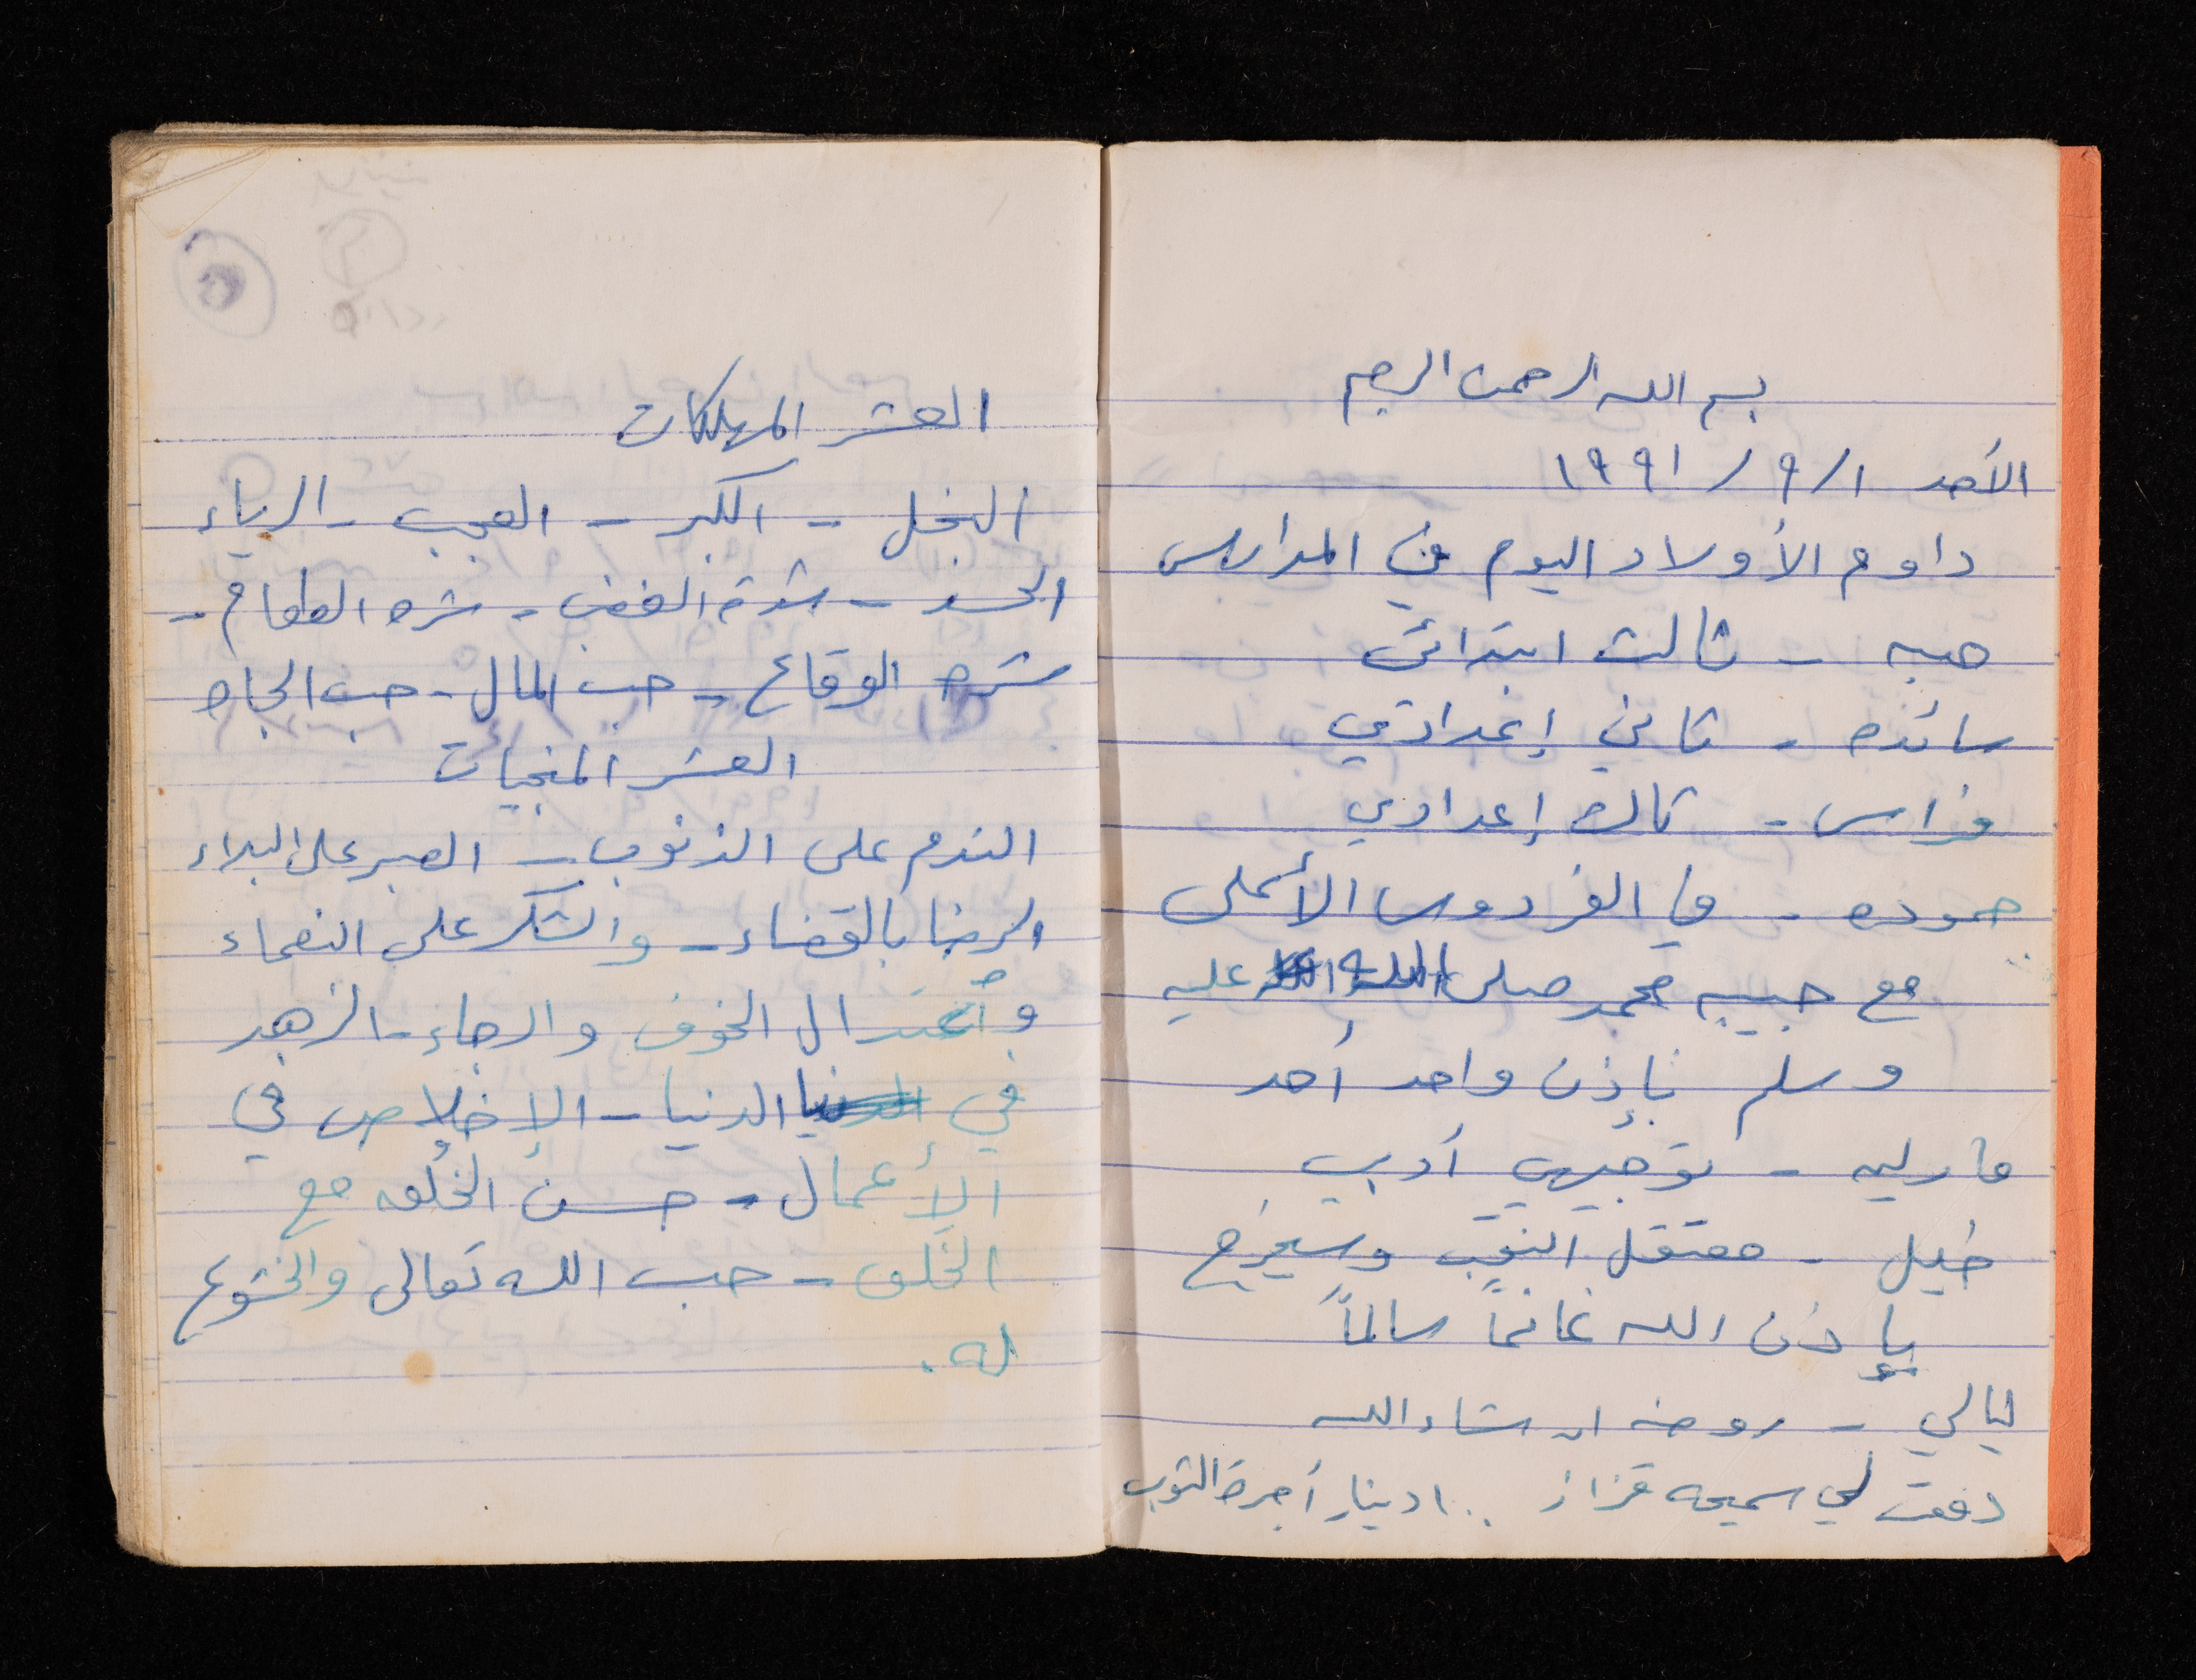 بسم الله الرحمن الرحيم
الأحد ١/ ٩/ ١٩٩١
داوم الأولاد اليوم في المدارس
هبه - ثالث ابتدائي
سائده - ثاني إعدادي
فراس - ثالث إعدادي
حموده - في الفردوس الأعلى
مع حبيبه محمد صلى الله عليه
وسلم بإذن واحد أحد
ماريه - توجيهي أدبي
خليل - معتقل النقب وسيخرج
بإذن الله غانماً سالماً
ليالي - روضه ان شاء الله
دفعت لي سميحه قزاز ١٠٠ دينار أجرة الثوب
العشر المهلكات
البخل - الكبر - العجب - الرياء
الحسد - شدة الغضب - شره الطعام -
شره الوقاع - حب المال - حب الجاه
العشر المنجيات
الندم على الذنوب - الصبر على البلاء
الرضا بالقضاء - والشكر على النعماء
وأعتدال الخوف والرجاء - الزهد
في الدنيا الدنيا - الإخلاص في
الأعمال - حسن الخُلق مع
الخَلق - حب الله تعالى والخشوع
له.